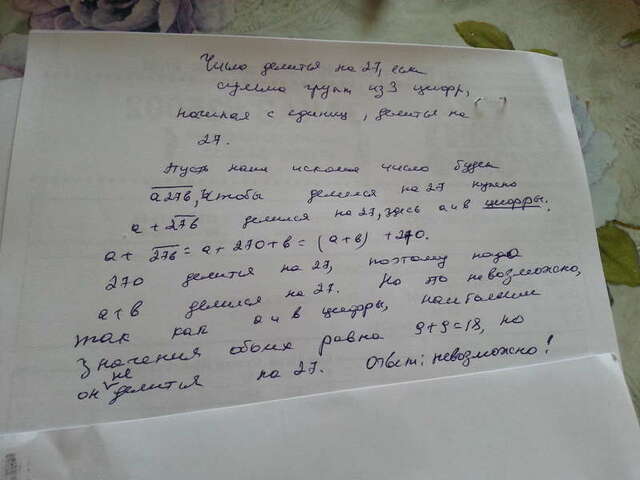 Число делится на 27, если
сумма групп из 3 цифр,
начиная с единиц, делится на
27.
Пусть наше искомое число будет
a27b, Чтобы делился на 27 нужно
a + 27b делился на 27, здесь a и в цифры.
a + 27b = a + 270 + b = (a+b) + 270.
270 делится на 27, поэтому надо
a+b делился на 27. Но это невозможно,
так как a и в цифры, наибольшие
значения обоих равна 9+9=18, но
он не делится на 27. Ответ: невозможно!